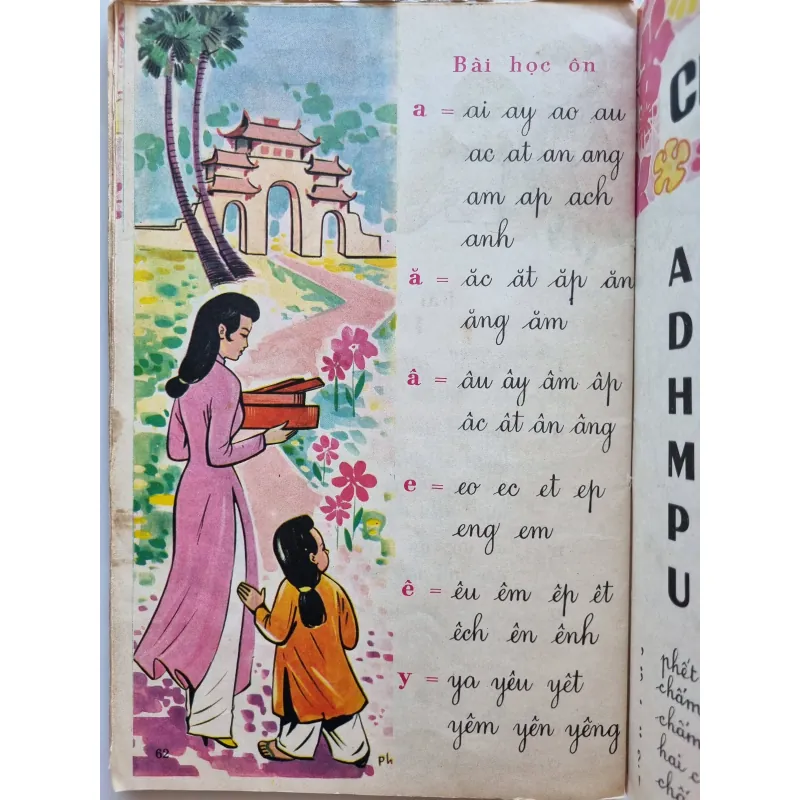 Bài học ôn
a = ai ay ao au
ac at an ang
am ap ach
anh
ă = ăc ăt ăp ăn
ăng ăm
â = âu ây âm âp
âc ât ân âng
e = eo ec et ep
eng em
ê = êu êm êp êt
êch ên ênh
y = ya yêu yêt
yêm yên yêng
62
ph
A
D
H
M
P
U
phết
chấm
chấm
hai